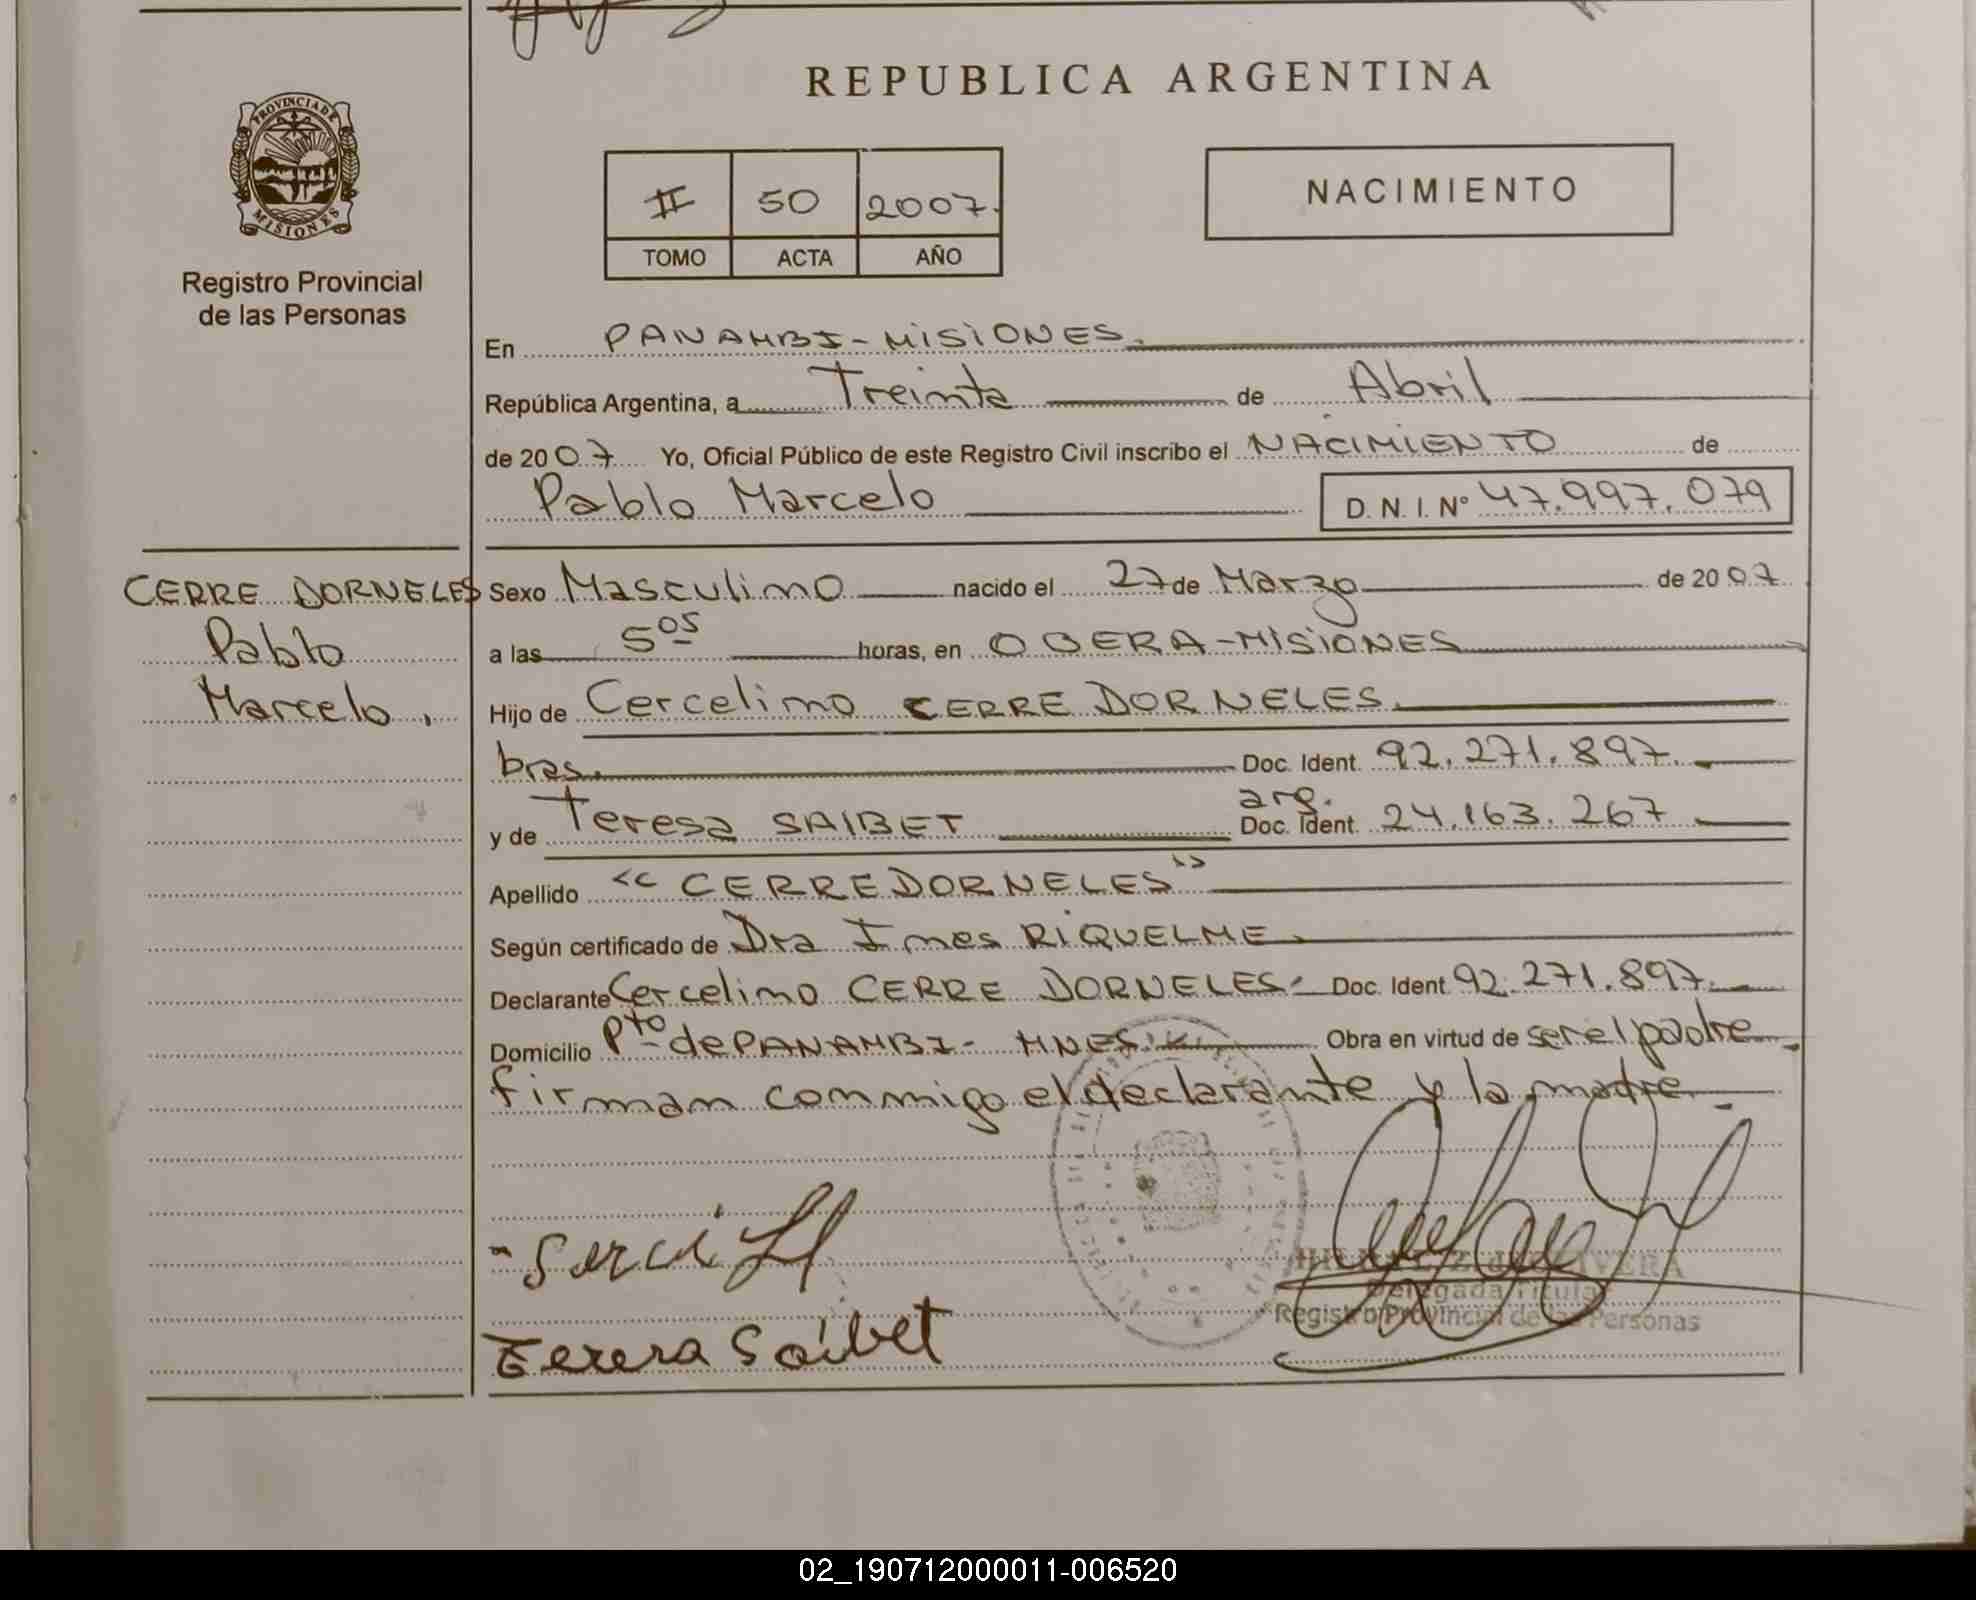 REPUBLICA ARGENTINA
PROVINCIA DE
MISIONES
Registro Provincial
de las Personas
II 50 2007.
TOMO ACTA AÑO
NACIMIENTO
En PANAMBI-MISIONES.
República Argentina, a Treinta de Abril
de 2007 Yo, Oficial Público de este Registro Civil inscribo el NACIMIENTO de
Pablo Marcelo D. N. I. Nº 47.997.079
CERRE DORNELES
Pablo
Marcelo.
Sexo Masculino nacido el 27 de Marzo de 2007.
a las 5 05 horas, en OBERA-MISIONES
Hijo de Cercelino CERRE DORNELES.
bras. Doc. Ident. 92.271.897.
arg.
y de Teresa SAIBET Doc. Ident. 24.163.267
Apellido "CERRE DORNELES"
Según certificado de Dra Ines RIQUELME.
Declarante Cercelino CERRE DORNELES. Doc. Ident. 92.271.897.
Domicilio Pto de PANAMBI- MNES. Obra en virtud de ser el padre
firman conmigo el declarante y la madre.
Teresa Saibet
Delegada Titular
Registro Provincial de las Personas
02_190712000011-006520